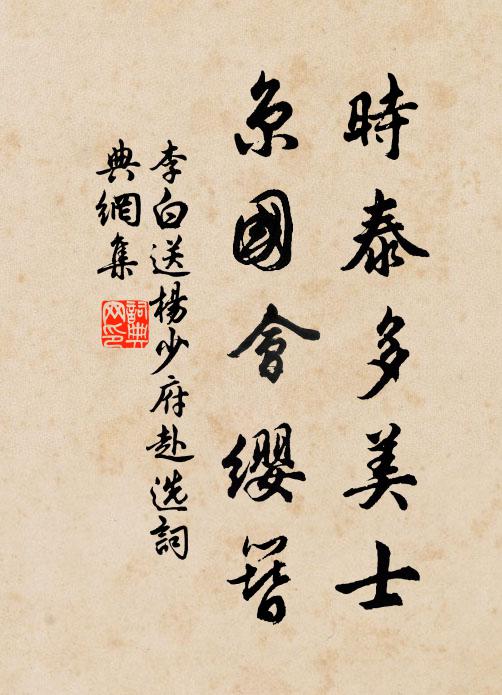 時泰多美士
京國會纓簪
李白送楊少府赴选詞
典網集
詞典网印